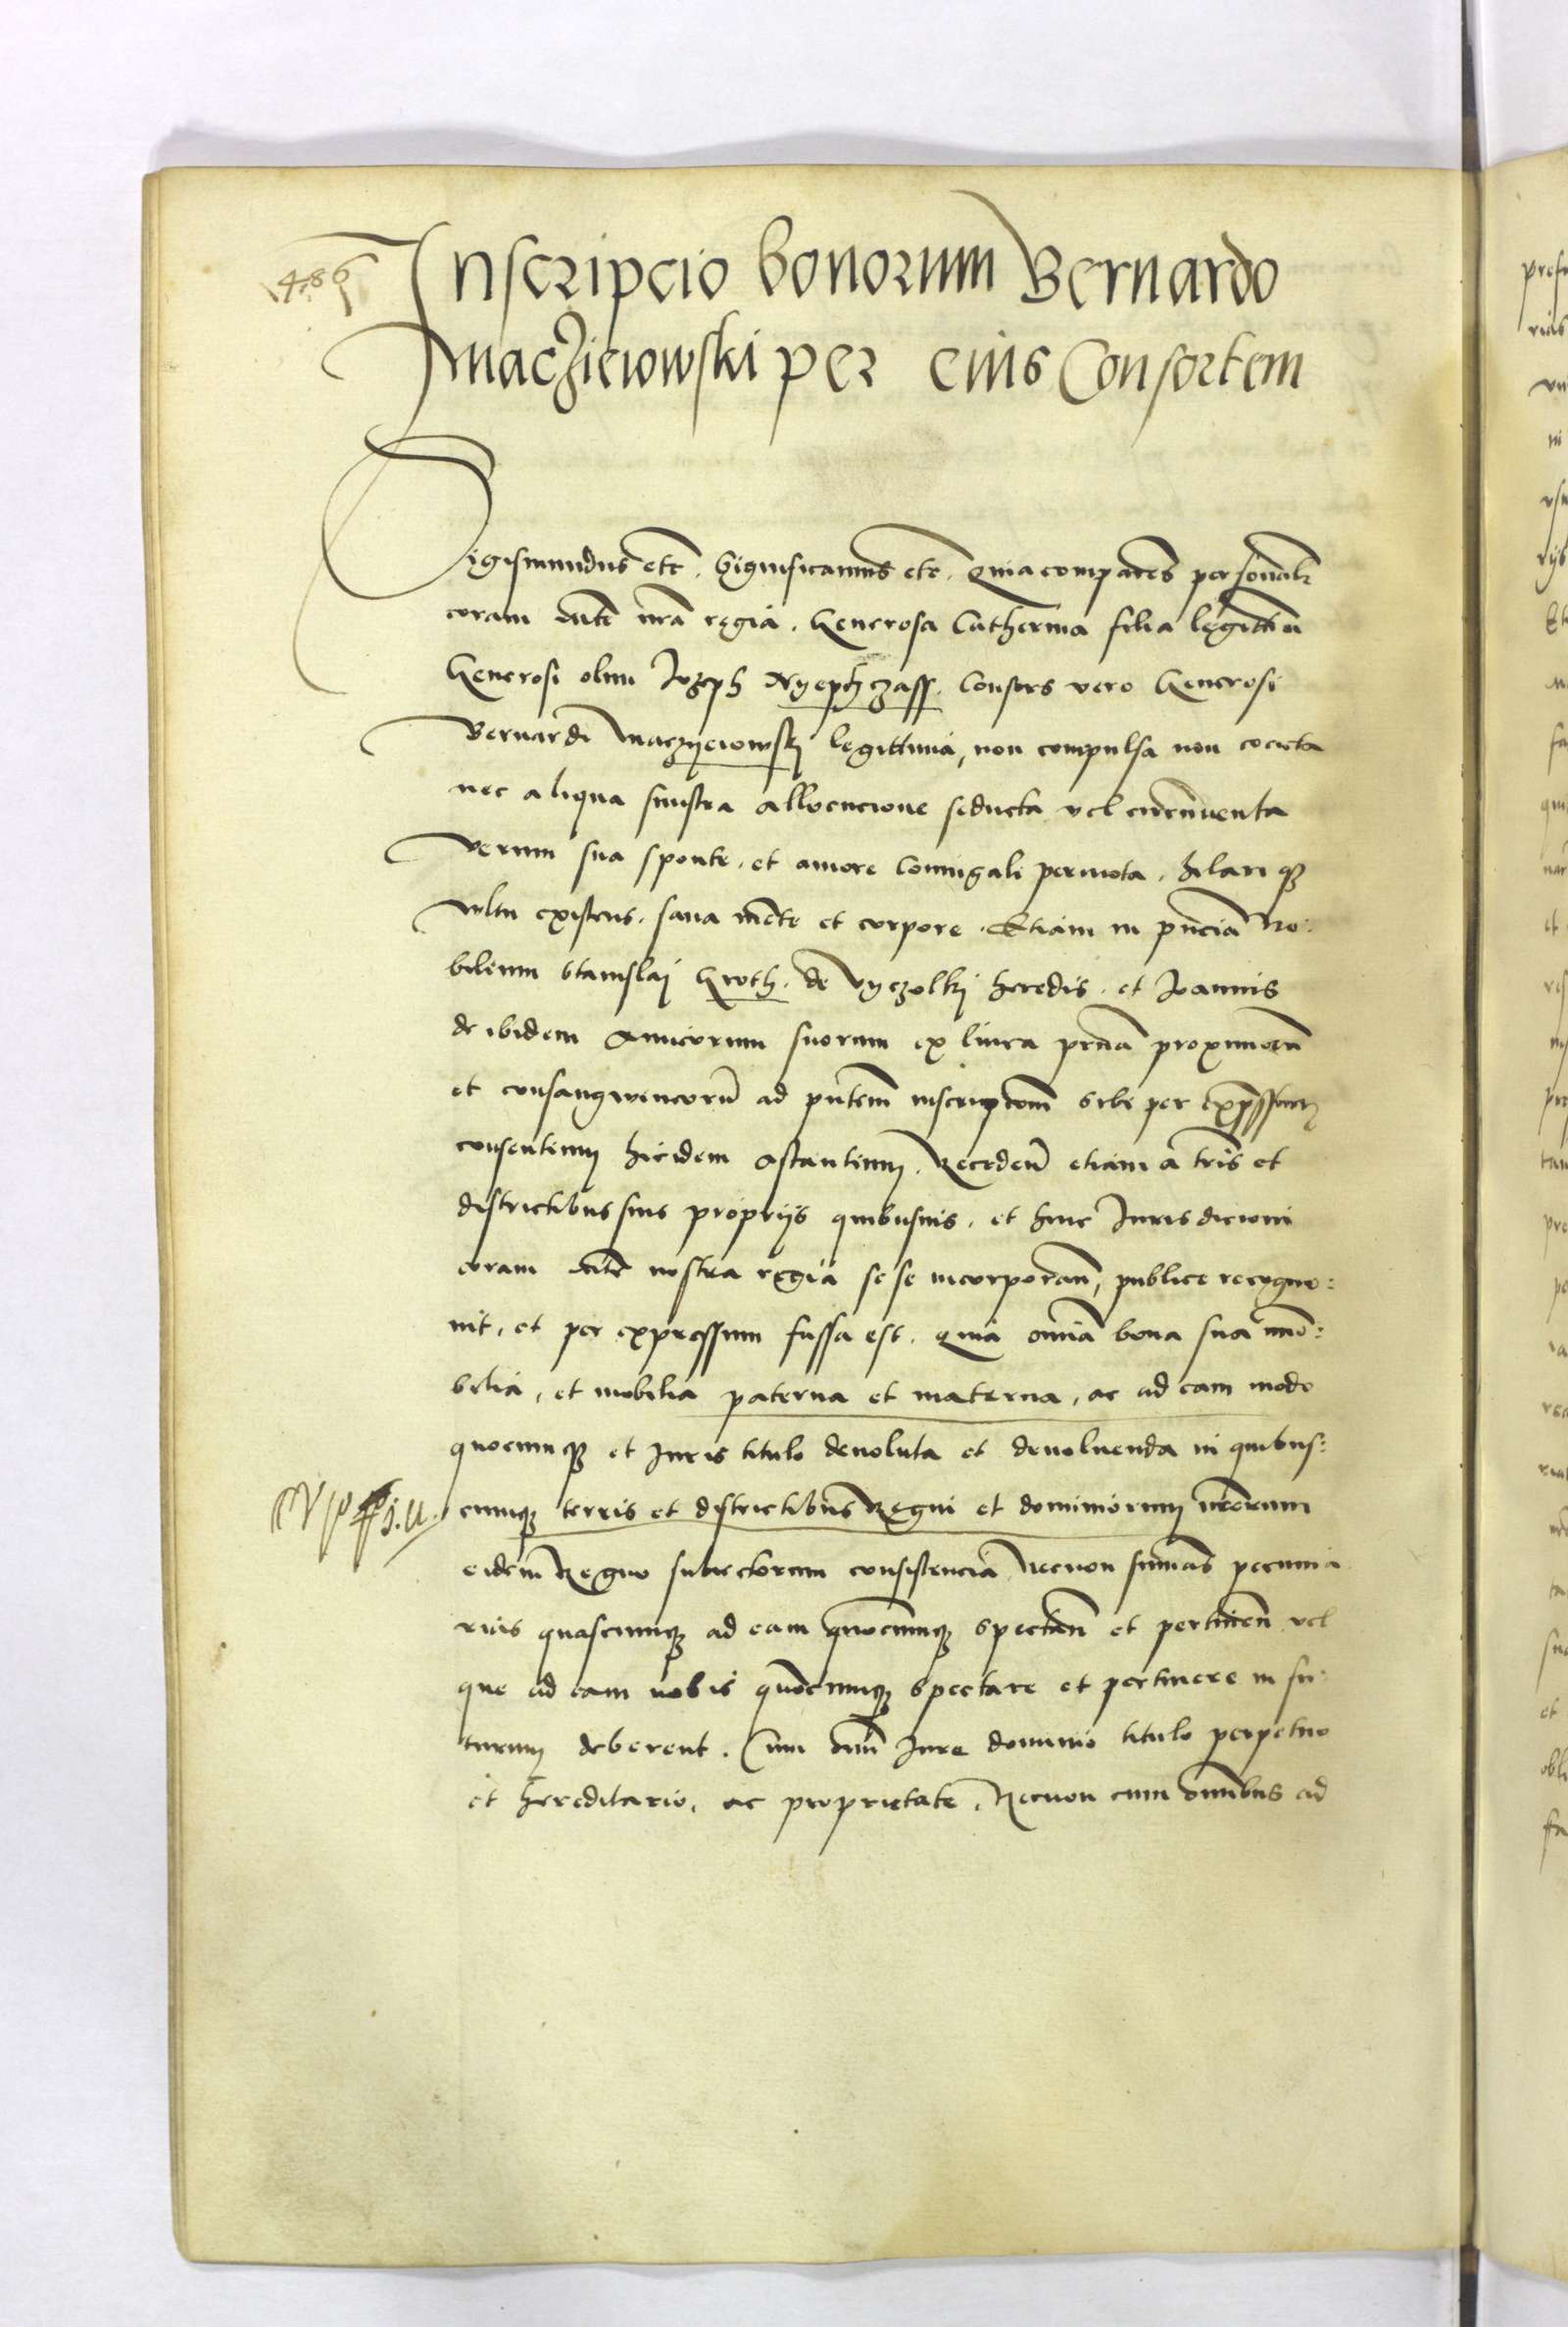 486
Inscripcio bonorum Bernardo
Maczieiowski per eius Consortem
Sigismundus etc. Significamus etc. Quia comparens personalr
coram mte nra regia. Generosa Catherina filia legittima
Generosi olim Jozeph consors vero Generosi
Bernardi Maczyeiowskj legittima, non compulsa non coacta
nec aliqua sinistra allocucione seducta vel circumventa
verum sua sponte. et amore coniugali permota. hilarique
vultu existens. sana mente et corpore. Etiam in pncia No:
bilium Stanislaj Groth. de Vyczolkj heredis. et Joannis
de ibidem amicorum suorum ex linea prna proximorum
et consangwineorum ad pntem inscripcionem sibi per expressum
consentium hicidem astantium. Recedens etiam a tris et
districtibus suis proprijs quibusuis. et huic Jurisdicioni
coram mte nostra regia sese incorporans, publice recogno:
uit, et per expressum fassa est. quia omnia bona sua immo:
bilia, et mobilia paterna et materna, ac ad eam modo
quocumque et Juris titulo deuoluta et deuoluenda in quibus:
cumque terris et districtibus Regni et dominiorum nrorum
eidem Regno subiectorum consistencia Necnon summas pecunia
rias quascumque ad eam quocumque spectan et pertinen vel
que ad eam quocumque spectare et pertinere in fu:
turum deberent. Cum omni Jure dominio titulo perpetuo
et hereditario, ac proprietate. Necnon cum omnibus ad